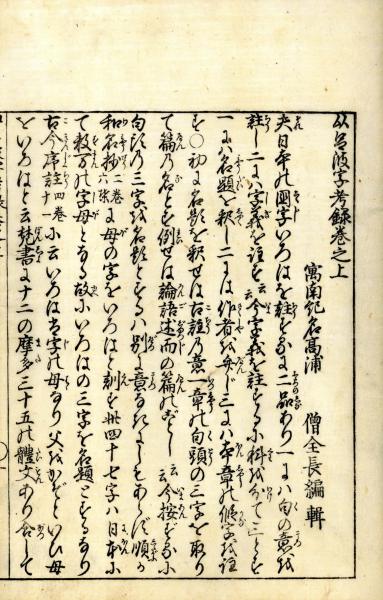 以呂波字考録巻之上
寓南紀名高浦　僧全長編輯
夫日本の國字いろはを註するに二品あり一には句の意を
註し二には字義を註す云云今字義を註する小科を分て三とす
一には名題を釈し二には作者を弁じ三には本章の條字を註
す〇初に名題を釈せば古註の意一章の句頭の三字を取り
て篇の名とす例せば論語述而の篇のごとし云云今按ずるに
句頭の三字を名題とするは別に意なきにしもあらず順が
和名抄二巻六張に母の字をいろはと訓ず此四十七字は日本に
て教方の字母となる故にいろはの三字を名題とするなり
古今序註十一四巻に云いろは者字の母なり父をかぞといひ母
をいろはと云梵書に十二の摩多三十五の體文あり合して